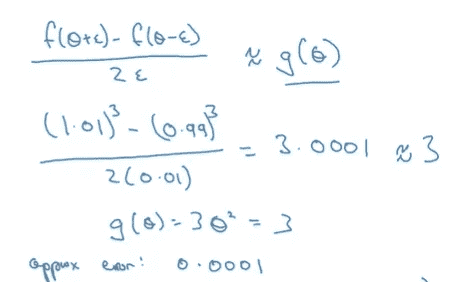 f(θ+ε) - f(θ-ε) / 2ε ≈ g(θ)
(1.01)³ - (0.99)³ / 2(0.01) = 3.0001 ≈ 3
g(θ) = 3θ² = 3
approx error: 0.0001